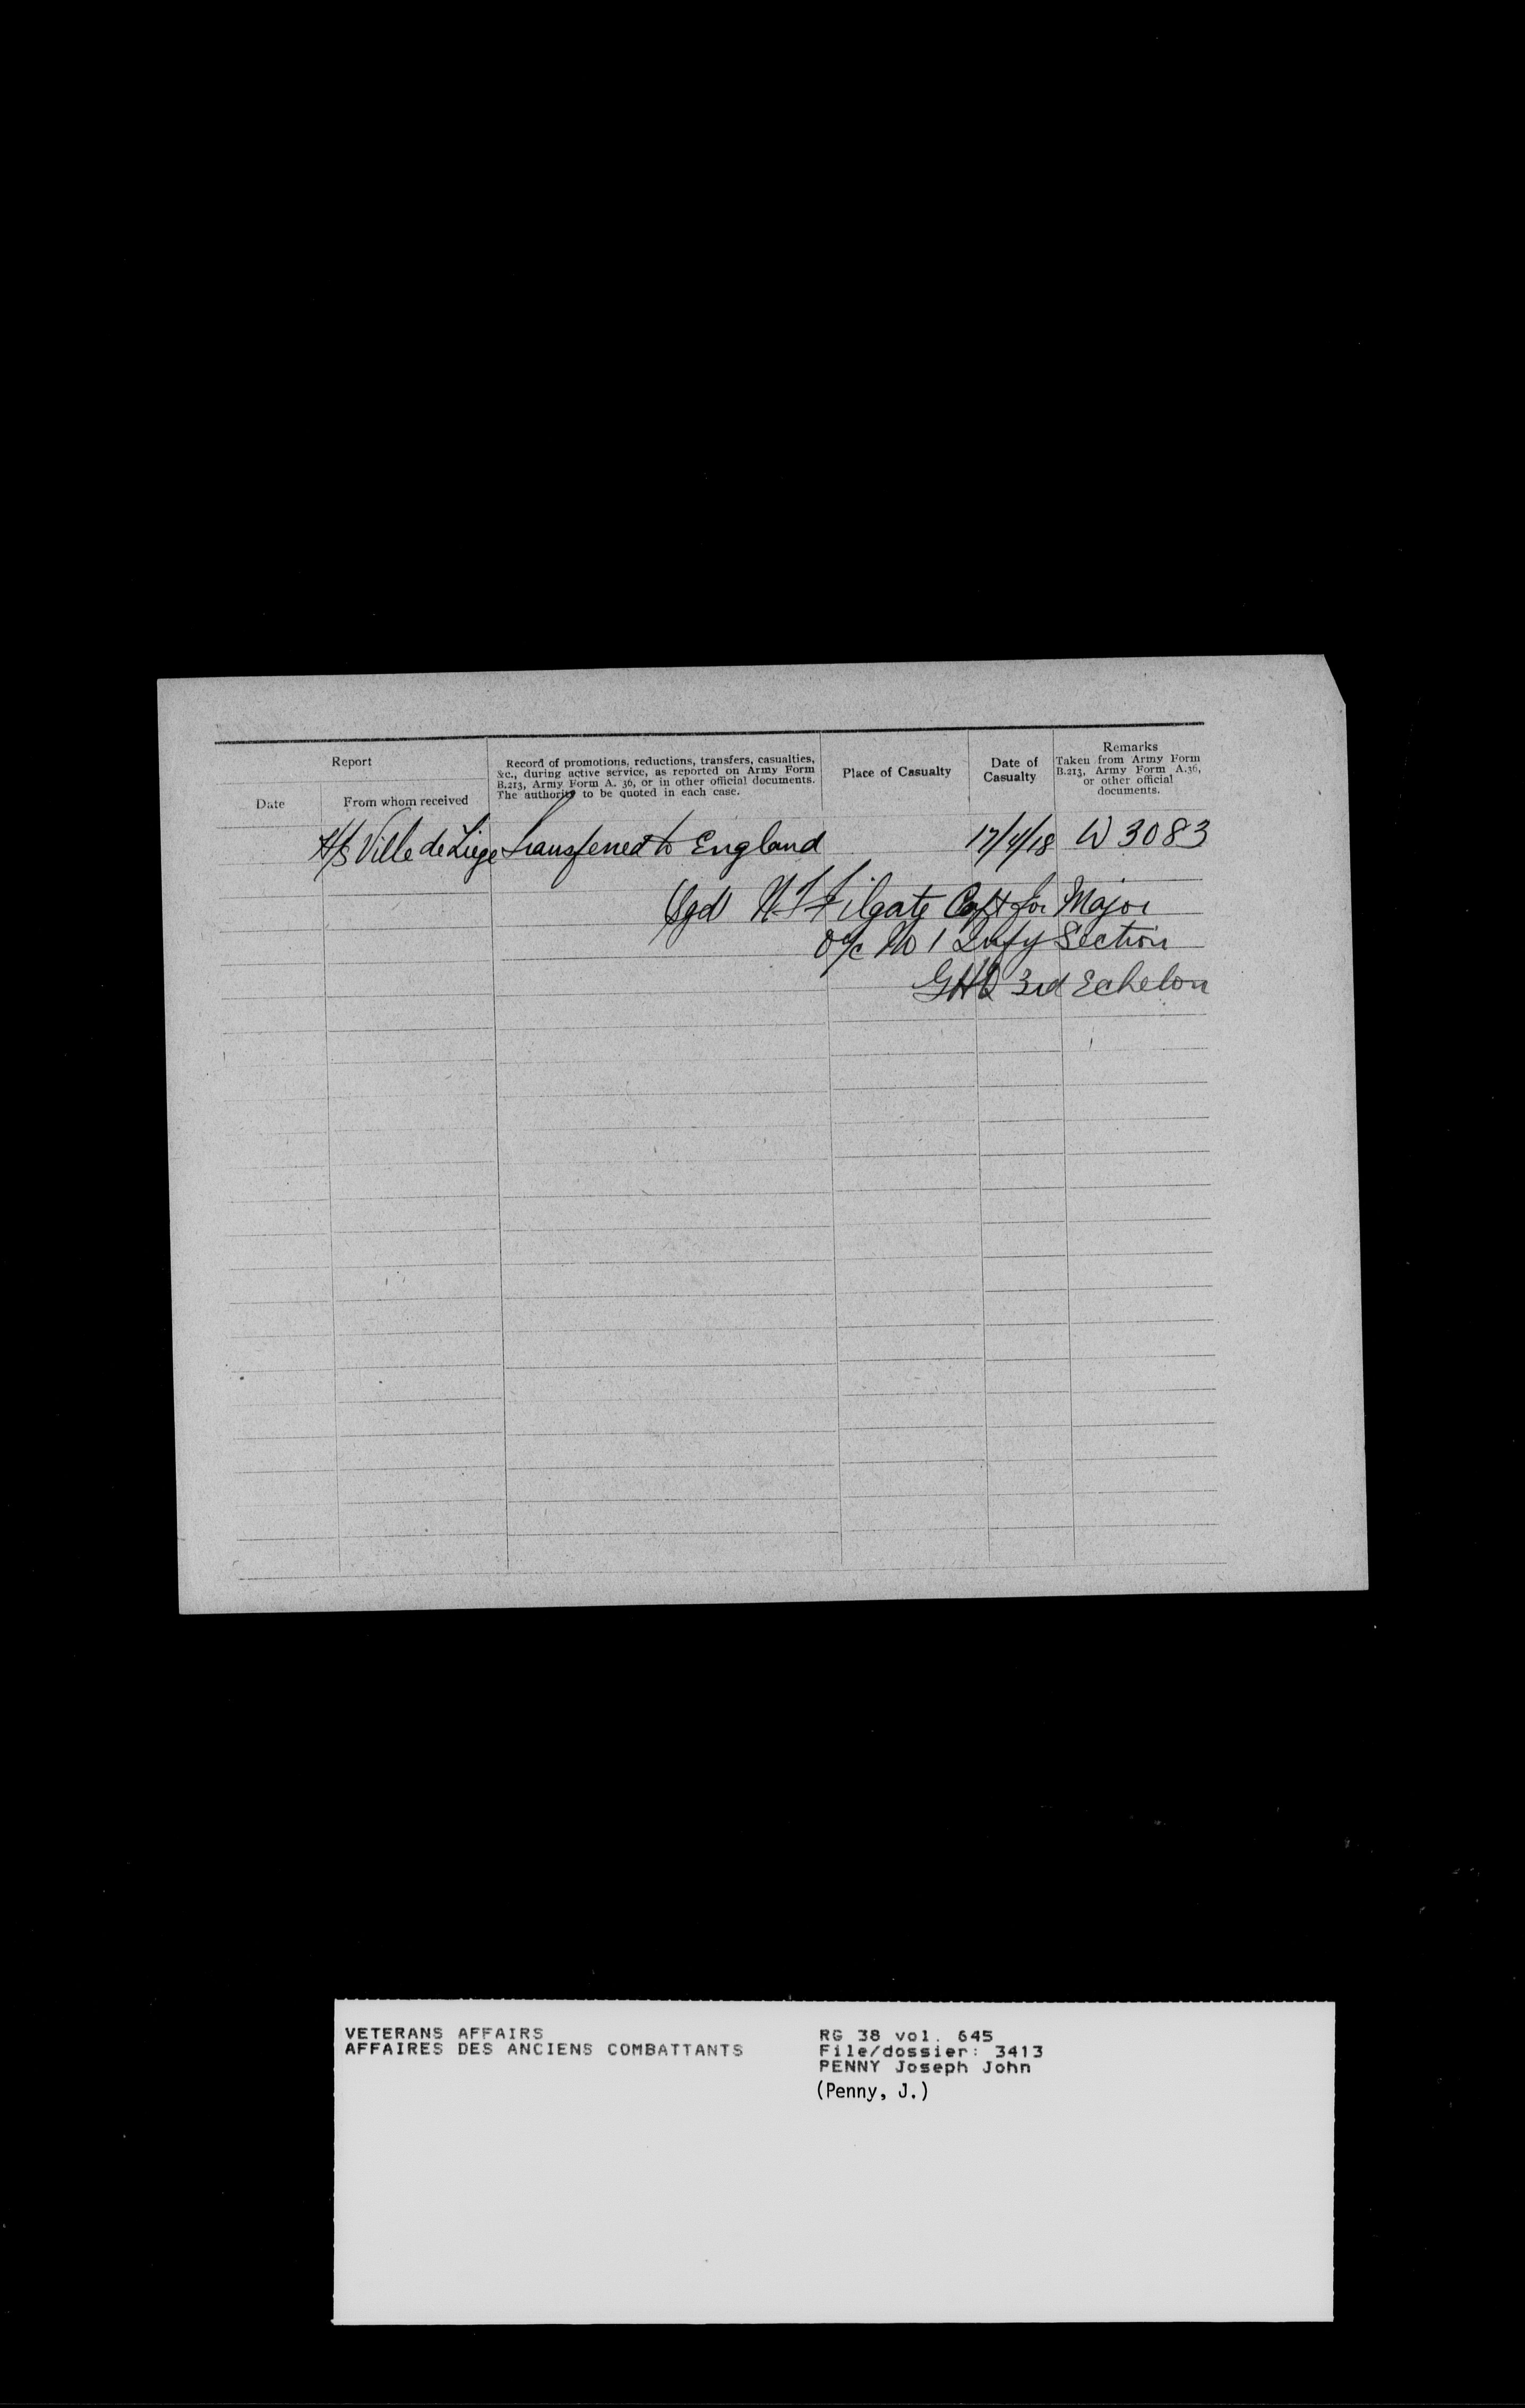 Report
Date
From whom received
Record of promotions, reductions, transfers, casualties,
&c., during active service, as reported on Army Form
B.213, Army Form A. 36, or in other official documents.
The authority to be quoted in each case.
Place of Casualty
Date of
Casualty
Remarks
Taken from Army Form
B.213, Army Form A.36,
or other official
documents.
H/S Ville de Liege Transferred to England 17/4/18 W 3083
(Sgd) Filgate Capt for Major
O/c No 1 Infy Section
GHQ 3rd Echelon
VETERANS AFFAIRS
AFFAIRES DES ANCIENS COMBATTANTS
RG 38 vol. 645
File/dossier: 3413
PENNY Joseph John
(Penny, J.)